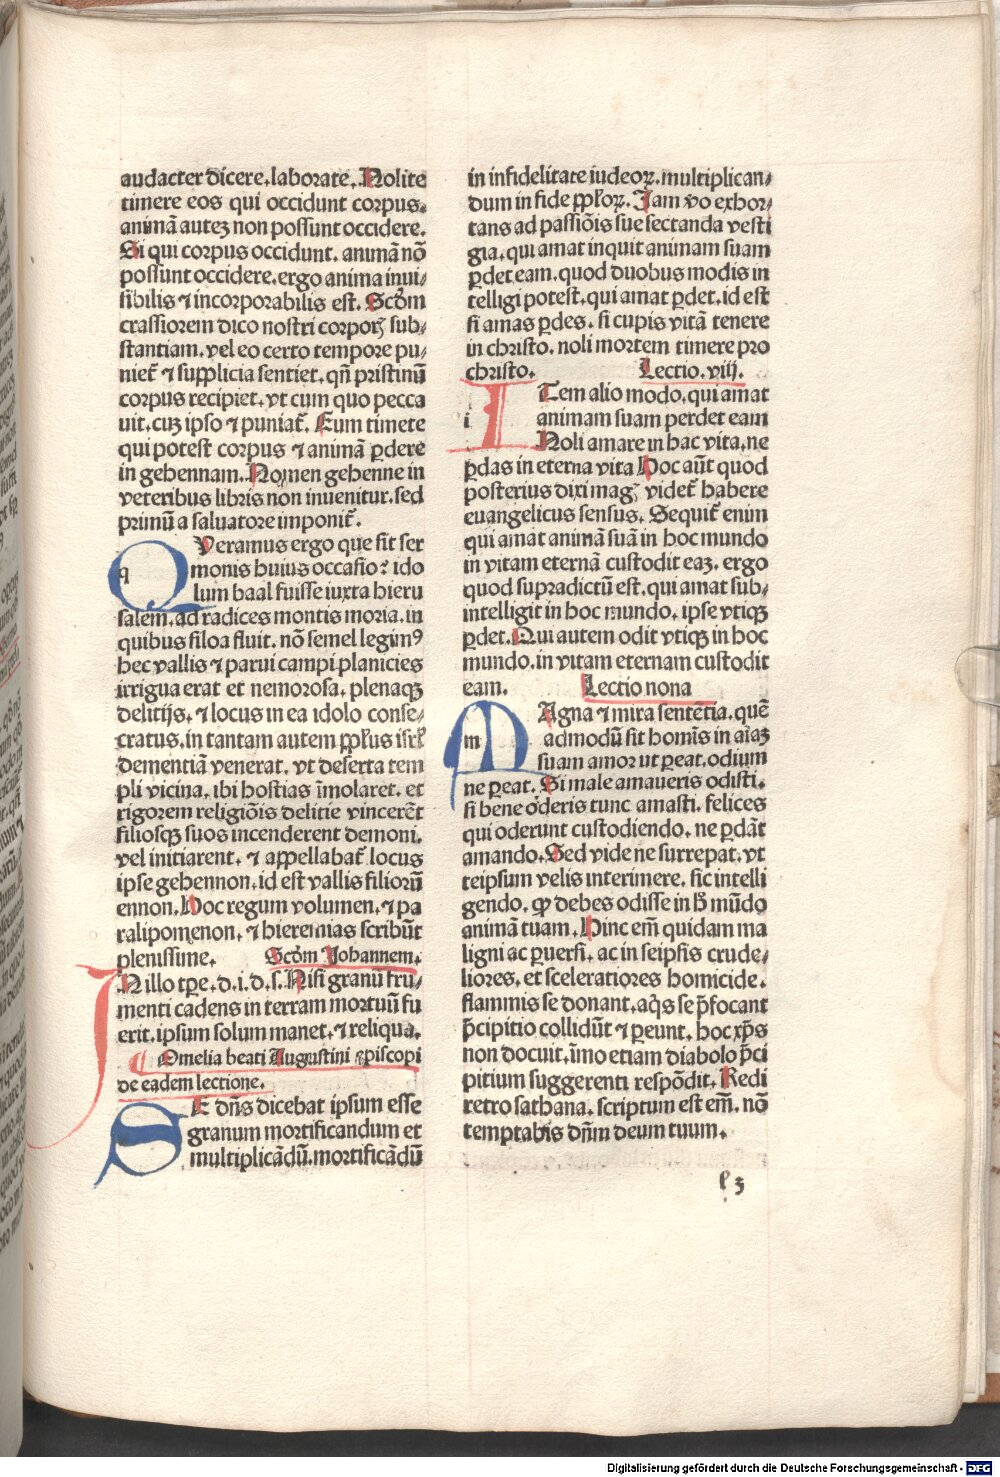 audacter dicere, laborate. Nolite
timere eos qui occidunt corpus.
animā autez non possunt occidere.
Si qui corpus occidunt. animā nō
possunt occidere. ergo anima inui/
sibilis ⁊ incorporabilis est. Scdm̄
crassiorem dico nostri corporꝭ sub/
stantiam. vel eo certo tempore pu/
niet̄ ⁊ supplicia sentiet. qn̄ pristinū
corpus recipiet. vt cum quo pecca
uit. cuz ipso ⁊ puniat̄. Eum timete
qui potest corpus ⁊ animā ꝑdere
in gehennam. Nomen gehenne in
veteribus libris non inuenitur. sed
primū a saluatore imponit̄.
QVeramus ergo que sit ser
monis huius occasio: ido
lum baal fuisse iuxta hieru
salem. ad radices montis moria. in
quibus siloa fluit. nō semel legimꝰ
hec vallis ⁊ parui campi planicies
irrigua erat et nemorosa. plenaqꝫ
delitijs. ⁊ locus in ea idolo conse/
cratus. in tantam autem ppl̄us isrl̄
dementiā venerat. vt deserta tem
pli vicina. ibi hostias īmolaret. et
rigorem religiōis delitie vincerēt
filiosqꝫ suos incenderent demoni.
vel initiarent. ⁊ appellabat̄ locus
ipse gehennon. id est vallis filiorū
ennon. Hoc regum volumen. ⁊ pa
ralipomenon. ⁊ hieremias scribūt
plenissime. Scdm̄ Johannem.
INillo tꝑe. d. i. d. s. Nisi granū fru/
menti cadens in terram mortuū fu
erit. ipsum solum manet. ⁊ reliqua.
Omelia beati Augustini episcopi
de eadem lectione.
SE dn̄s dicebat ipsum esse
granum mortificandum et
multiplicādū. mortificādū
in infidelitate iudeoꝝ. multiplican/
dum in fide ppl̄oꝝ. Jam v̄o exhor/
tans ad passiōis sue sectanda vesti
gia. qui amat inquit animam suam
ꝑdet eam. quod duobus modis in
telligi potest. qui amat ꝑdet. id est
si amas ꝑdes. si cupis vitā tenere
in christo. noli mortem timere pro
christo. Lectio. viij.
ITem alio modo. qui amat
animam suam perdet eam
Noli amare in hac vita. ne
ꝑdas in eterna vita Hoc aūt quod
posterius dixi magꝭ videt̄ habere
euangelicus sensus. Sequit̄ enim
qui amat animā suā in hoc mundo
in vitam eternā custodit eaz. ergo
quod supradictū est. qui amat sub/
intelligit in hoc mundo. ipse vtiqꝫ
ꝑdet. Qui autem odit vtiqꝫ in hoc
mundo. in vitam eternam custodit
eam. Lectio nona
MAgna ⁊ mira sentētia. quē
admodū sit homīs in aīaz
suam amor ut ꝑeat. odium
ne ꝑeat. Si male amaueris odisti.
si bene oderis tunc amasti. felices
qui oderunt custodiendo. ne ꝑdāt
amando. Sed vide ne surrepat. vt
teipsum velis interimere. sic intelli
gendo. ꝙ debes odisse in h̄ mūdo
animā tuam. Hinc em̄ quidam ma
ligni ac ꝑuersi. ac in seipsis crude/
liores. et sceleratiores homicide.
flammis se donant. aq̄s se p̄focant
p̄cipitio collidūt ⁊ ꝑeunt. hoc xp̄s
non docuit. īmo etiam diabolo p̄ci
pitium suggerenti respōdit. Redi
retro sathana. scriptum est em̄. nō
temptabis dn̄m deum tuum.
l 3
Digitalisierung gefördert durch die Deutsche Forschungsgemeinschaft - DFG